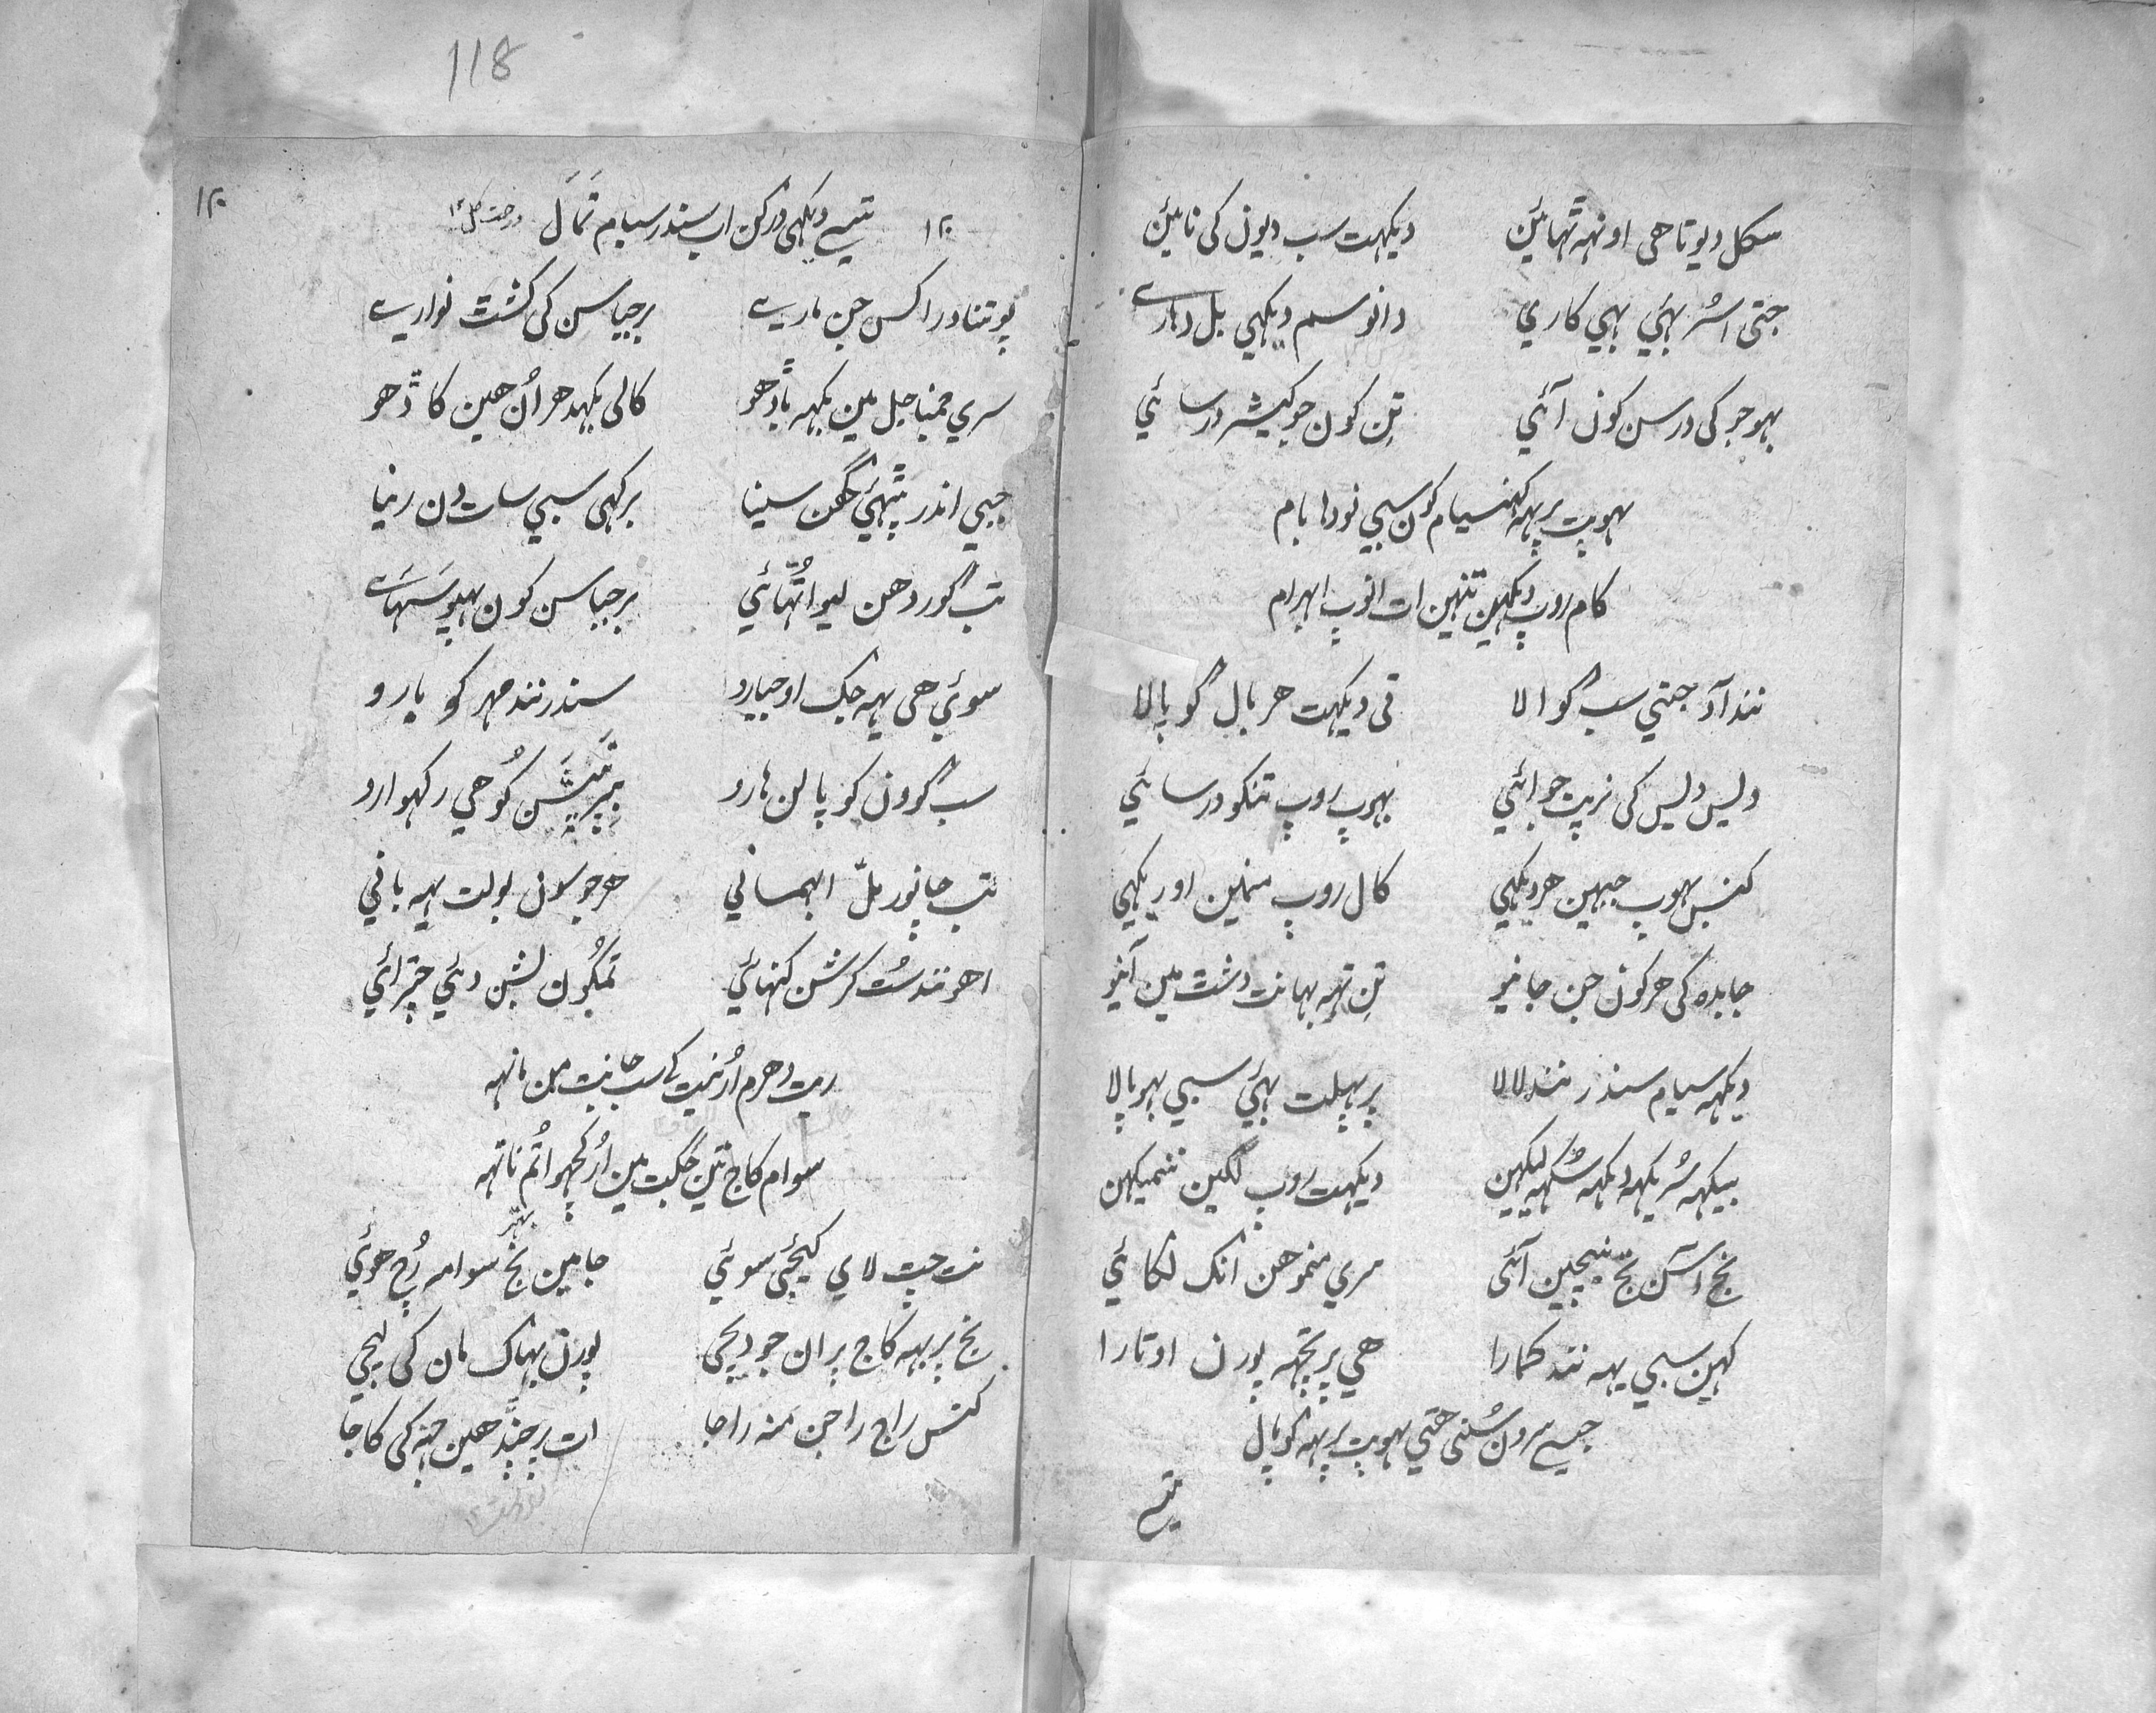 118
سکل دیوتا هی اونہہ تھائین دیکهت سب دیون کی نائین
جتی اسُر بهئي بهي کاري دانو سم دیکهي بل دهارے
بہو جو کی درسن کون آئي تِن کون جوکیشر درسائي
بهوپت پربهہ کهنسیام کون سبي نودا بام
کام روپ دیکهین تنهین ات انوپ ابهرام
نند آد جتي سب گوالا تی دیکهت هر بال گوپالا
دیس دیس کی نرپت جو آئي بهوپ روپ تنکو درسائي
کنس بهوپ جبهین هر دیکهي کال روپ منمین اوریکهي
جابده کی هر کون جن جانیو تِن تهہ بهانت دشت مین آنیو
دیکهہ سیام سندر نند لالا پرپهلت بهئي سبي بهوپالا
بیکهہ سُر یکهہ دیکهہ سُکهہ لیکهین دیکهت روپ لگین نمیکهن
نج آسن نج نیچین آئی مري منموهن انک لکائي
کهین سبي یهہ نند کمارا هي پرتچهہ پورن اوتارا
جیسے سرون سُنی هتي بهوپت پربهہ گوپال
تیسے
۱۲۰ ۱۲
تیسے دیکهی درکن اب سندر سیام تَمَال
پوتنا در اکسن جن ماریے برجباسن کی کشت نواریے
سري جمنا جل مین یکهہ باڈهو کالی یکهد هر اُن هین کاڈهو
جبي اندر پٹهئي گهن سینا برکهی سبي سات دن رینا
تب گوردهن لیو اُٹهائي برجباسن کون بهیو سَهاے
سوئي هی یهہ جک اوجیارو سندر نند مهر کو بارو
سب گوون کو پالن هارو کُو هي رکهوارو
تب چانور ملّ ابهماني هر جو سون بولت یهہ باني
اهو نند سُت کرشن کنهائي تمکُون بشن دئي چترائي
ریت دهرم اُر نیت کے سب جانت من مانهہ
سوام کاج تین جگت مین اُر کچهو اُتم ناتهہ
نت چت لاي کیجئی سوئي جا مین نج سوامہ رُچ هوئي
نج پربهہ کاج پران جو دیجی پورن بهاک مان کی لیجي
کنس راج راجن منہ راجا ات پرچنڈ هین جنہ کی کاجا